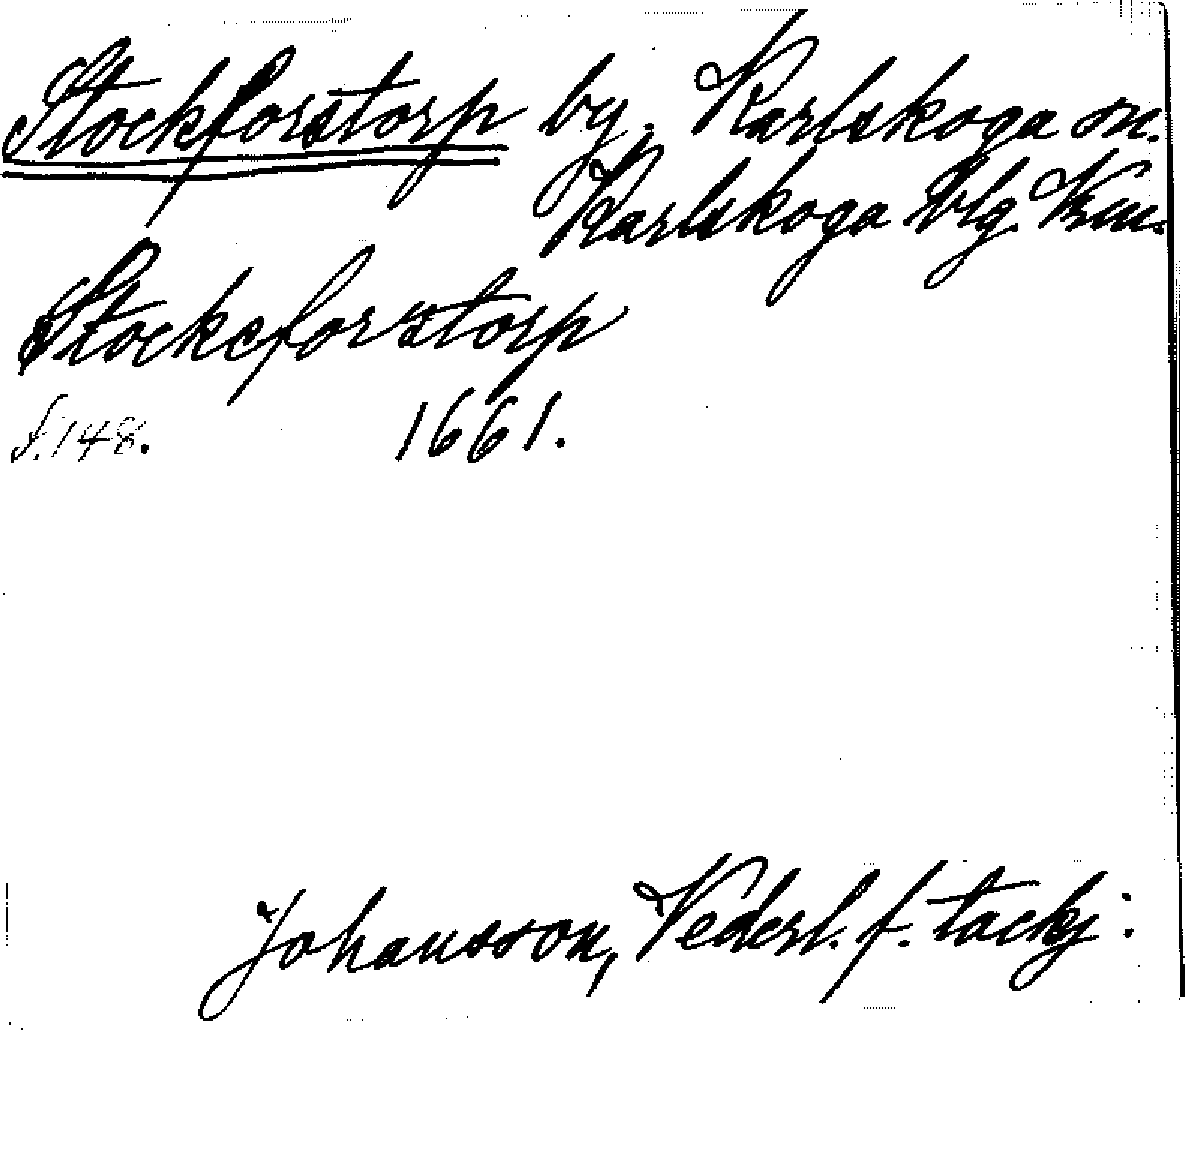 Stockforstorp by. Karlskoga sn.
Karlskoga blg. Km.
Stockeforstorp
s. 148. 1661.
Johansson, Vederl. f. tackj: